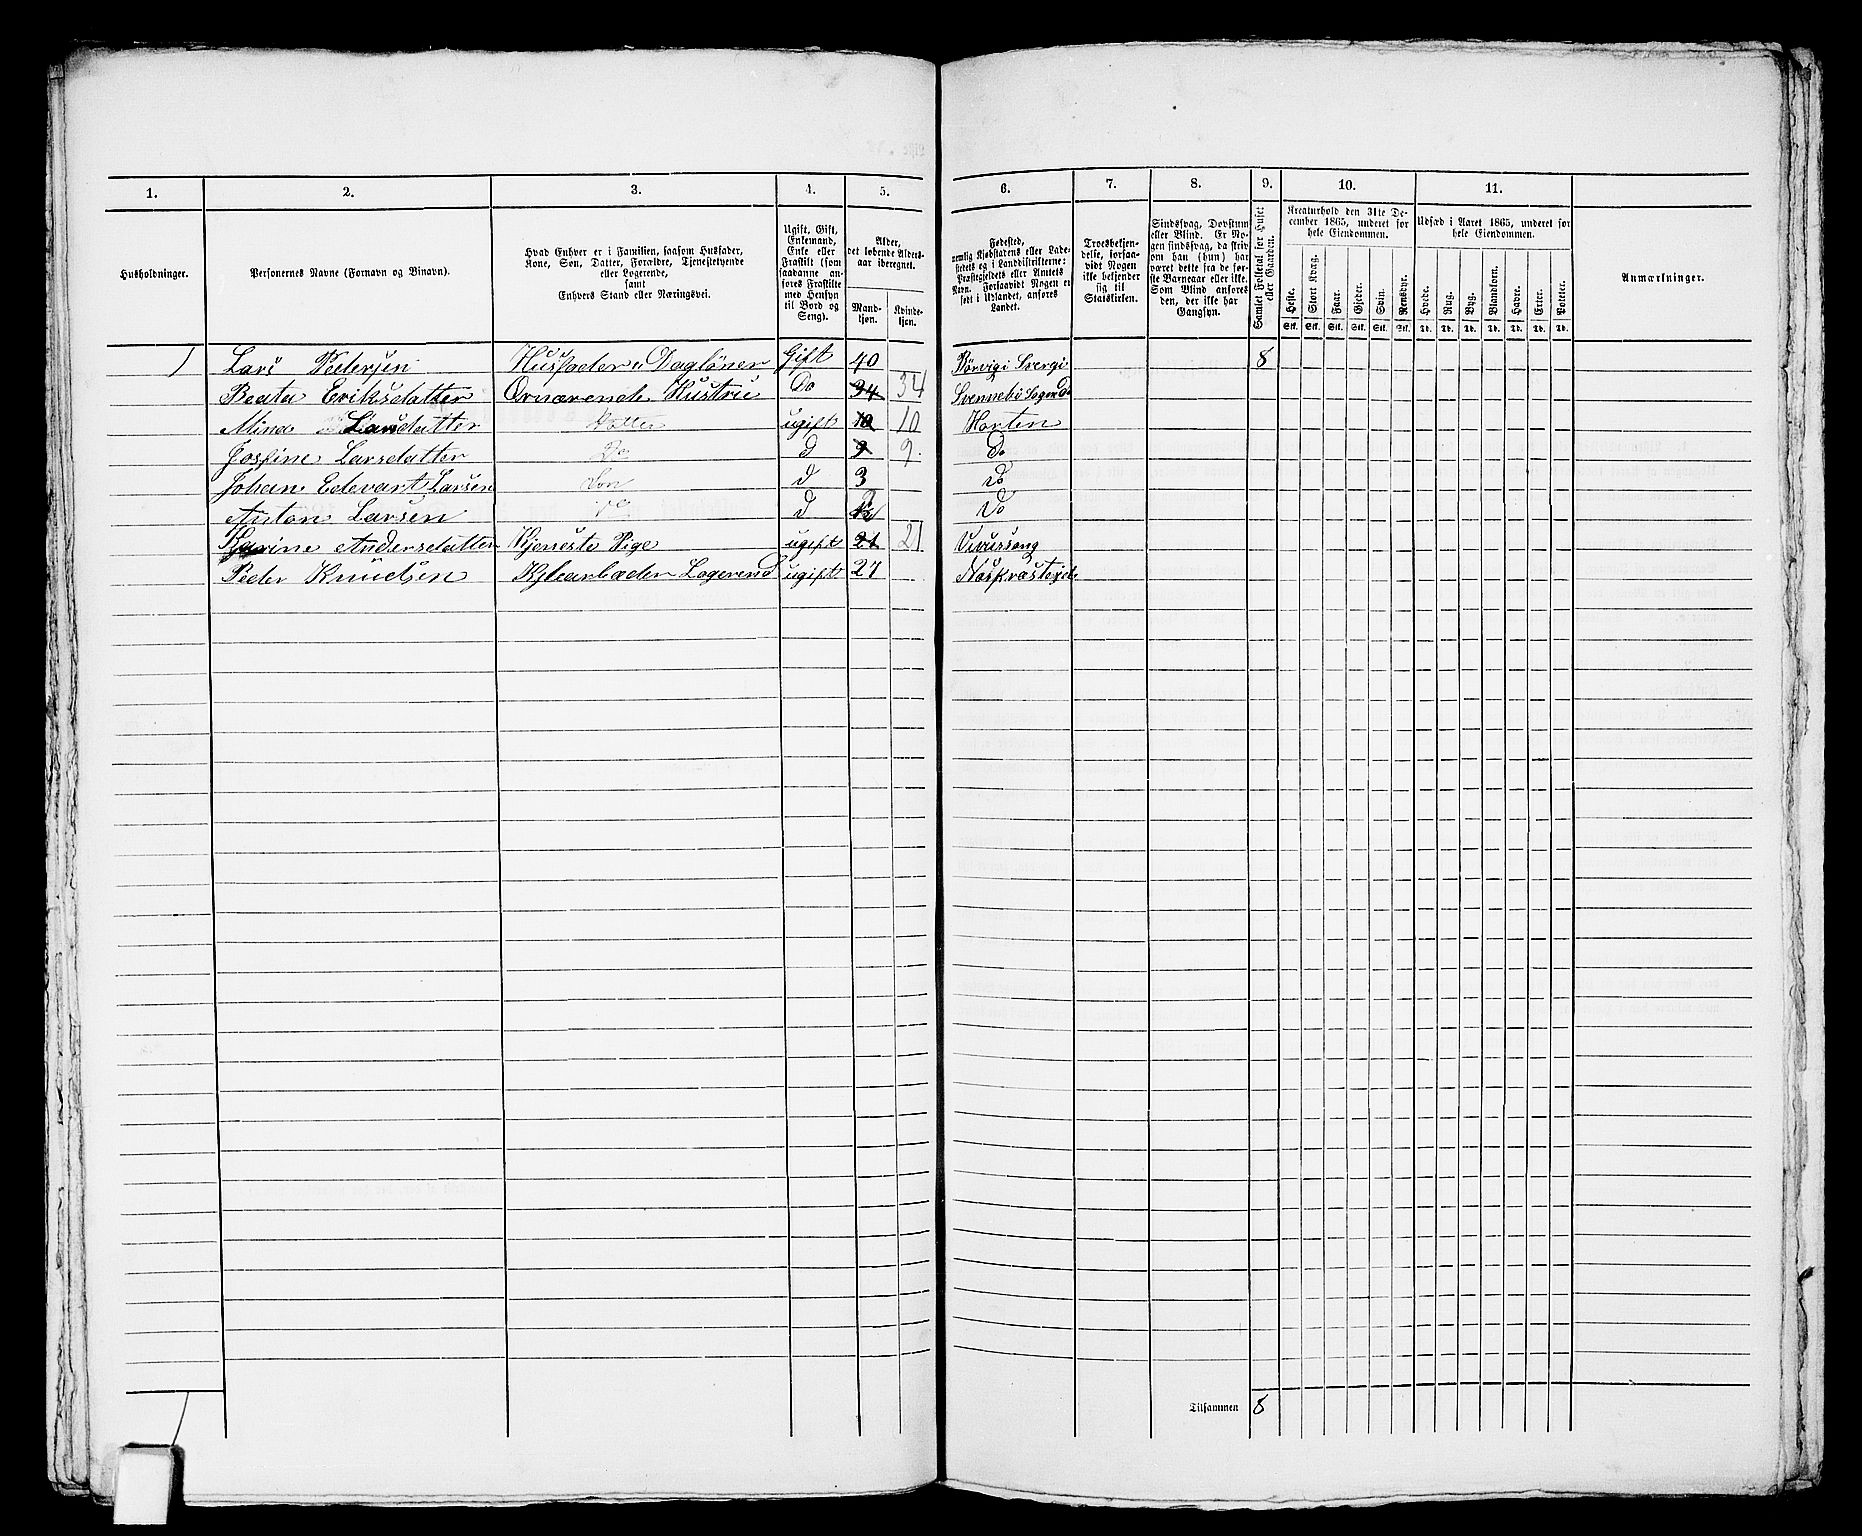 1. 2. 3. 4. 5. 6. 7. 8. 9. 10. 11.
Husholdninger.
Personernes Navne (Fornavn og Binavn).
Hvad Enhver er i Familien, saasom Husfader,
Kone, Søn, Datter, Forældre, Tjenestetyende
eller Logerende,
samt
Enhvers Stand eller Næringsvei.
Ugift, Gift,
Enkemand,
Enke eller
Fraskilt (som
saadanne an-
føres Fraskilte
med Hensyn
til Bord og
Seng).
Alder,
det løbende Alders-
aar iberegnet.
Mand-
kjøn.
Kvinde-
kjøn.
Fødested,
nemlig Kjøbstadens eller Lade-
stedets og i Landdistrikterne:
Præstegjeldets eller Amtets
Navn. Forsaavidt Nogen er
født i Udlandet, anføres
Landet.
Troesbekjen-
delse, forsaa-
vidt Nogen
ikke bekjender
sig til
Statskirken.
Sindssvag, Døvstum
eller Blind. Er No-
gen sindssvag, da skriv
om han (hun) har
været dette fra de før-
ste Barneaar eller ikke.
Som Blind anføres
den, der ikke har
Gangsyn.
Samlet Folketal for Huset
eller Gaarden.
Kreaturhold den 31te De-
cember 1865, underet for
hele Eiendommen.
Heste. Stort Kvæg. Faar. Gjeder. Svin. Rensdyr.
Stk. Stk. Stk. Stk. Stk. Stk.
Udsæd i Aaret 1865, underet for
hele Eiendommen.
Hvede. Rug. Byg. Blandkorn. Havre. Erter. Poteter.
Td. Td. Td. Td. Td. Td. Td.
Anmærkninger.
1 Lars Pedersen Husfader Dagløner Gift 40 8
Beata Eriksdatter Hustru Do 34 34
Mina Larsdatter Datter ugift 10 10 Horten
Josfine Larsdatter Do d 9 9. Do
Johan Edevart Larsen Søn d 3 Do
Anton Larsen Do d Do
Karine Andersdatter Tjeneste Pige ugift 21 21
Peder Knudsen Logerend ugift 27
Tilsammen 8